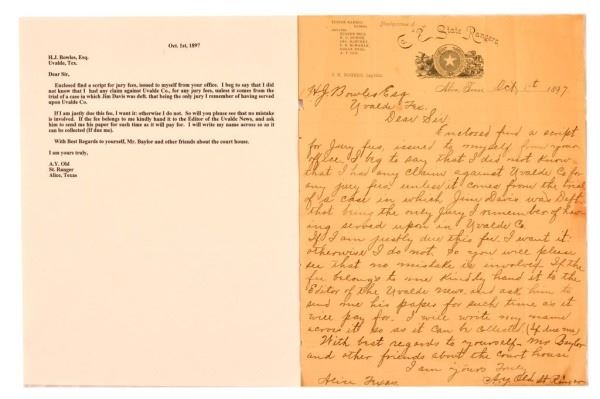 Oct. 1st, 1897
H.J. Bowles, Esq.
Uvalde, Tex.
Dear Sir,
Enclosed find a script for jury fees, issued to myself from your office. I beg to say that I did not
know that I had any claim against Uvalde Co., for any jury fees, unless it comes from the
trial of a case in which Jim Davis was deft. that being the only jury I remember of having served
upon Uvalde Co.
If I am justly due this fee, I want it: otherwise I do not. So will you please see that no mistake
is involved. If the fee belongs to me kindly hand it to the Editor of the Uvalde News, and ask
him to send me his paper for such time as it will pay for. I will write my name across so as it
can be collected (If due me).
With Best Regards to yourself, Mr. Baylor and other friends about the court house.
I am yours truly,
A.Y. Old
St. Ranger
Alice, Texas
Headquarters of
Co. State Rangers
Oct 1st 1897
H.J. Bowles Esq
Uvalde Tex.
Dear Sir,
Enclosed find a script
for Jury fees, issued to myself from your
office. I beg to say that I did not know
that I had any claim against Uvalde Co for
any jury fees, unless it comes from the trial
of a case in which Jim Davis was Deft.
that being the only Jury I remember of hav-
ing served upon in Uvalde Co.
If I am justly due this fee. I want it:
otherwise I do not. So you will please
see that no mistake is involved. If the
fee belongs to me Kindly hand it to the
Editor of The Uvalde News. and ask him to
send me his paper for such time as it
will pay for. I will write my name
across it so as it can be collected (If due me)
With best regards to yourself- Mr Baylor
and other friends about the court house
I am yours Truly
Alice Texas. A.Y. Old St Ranger